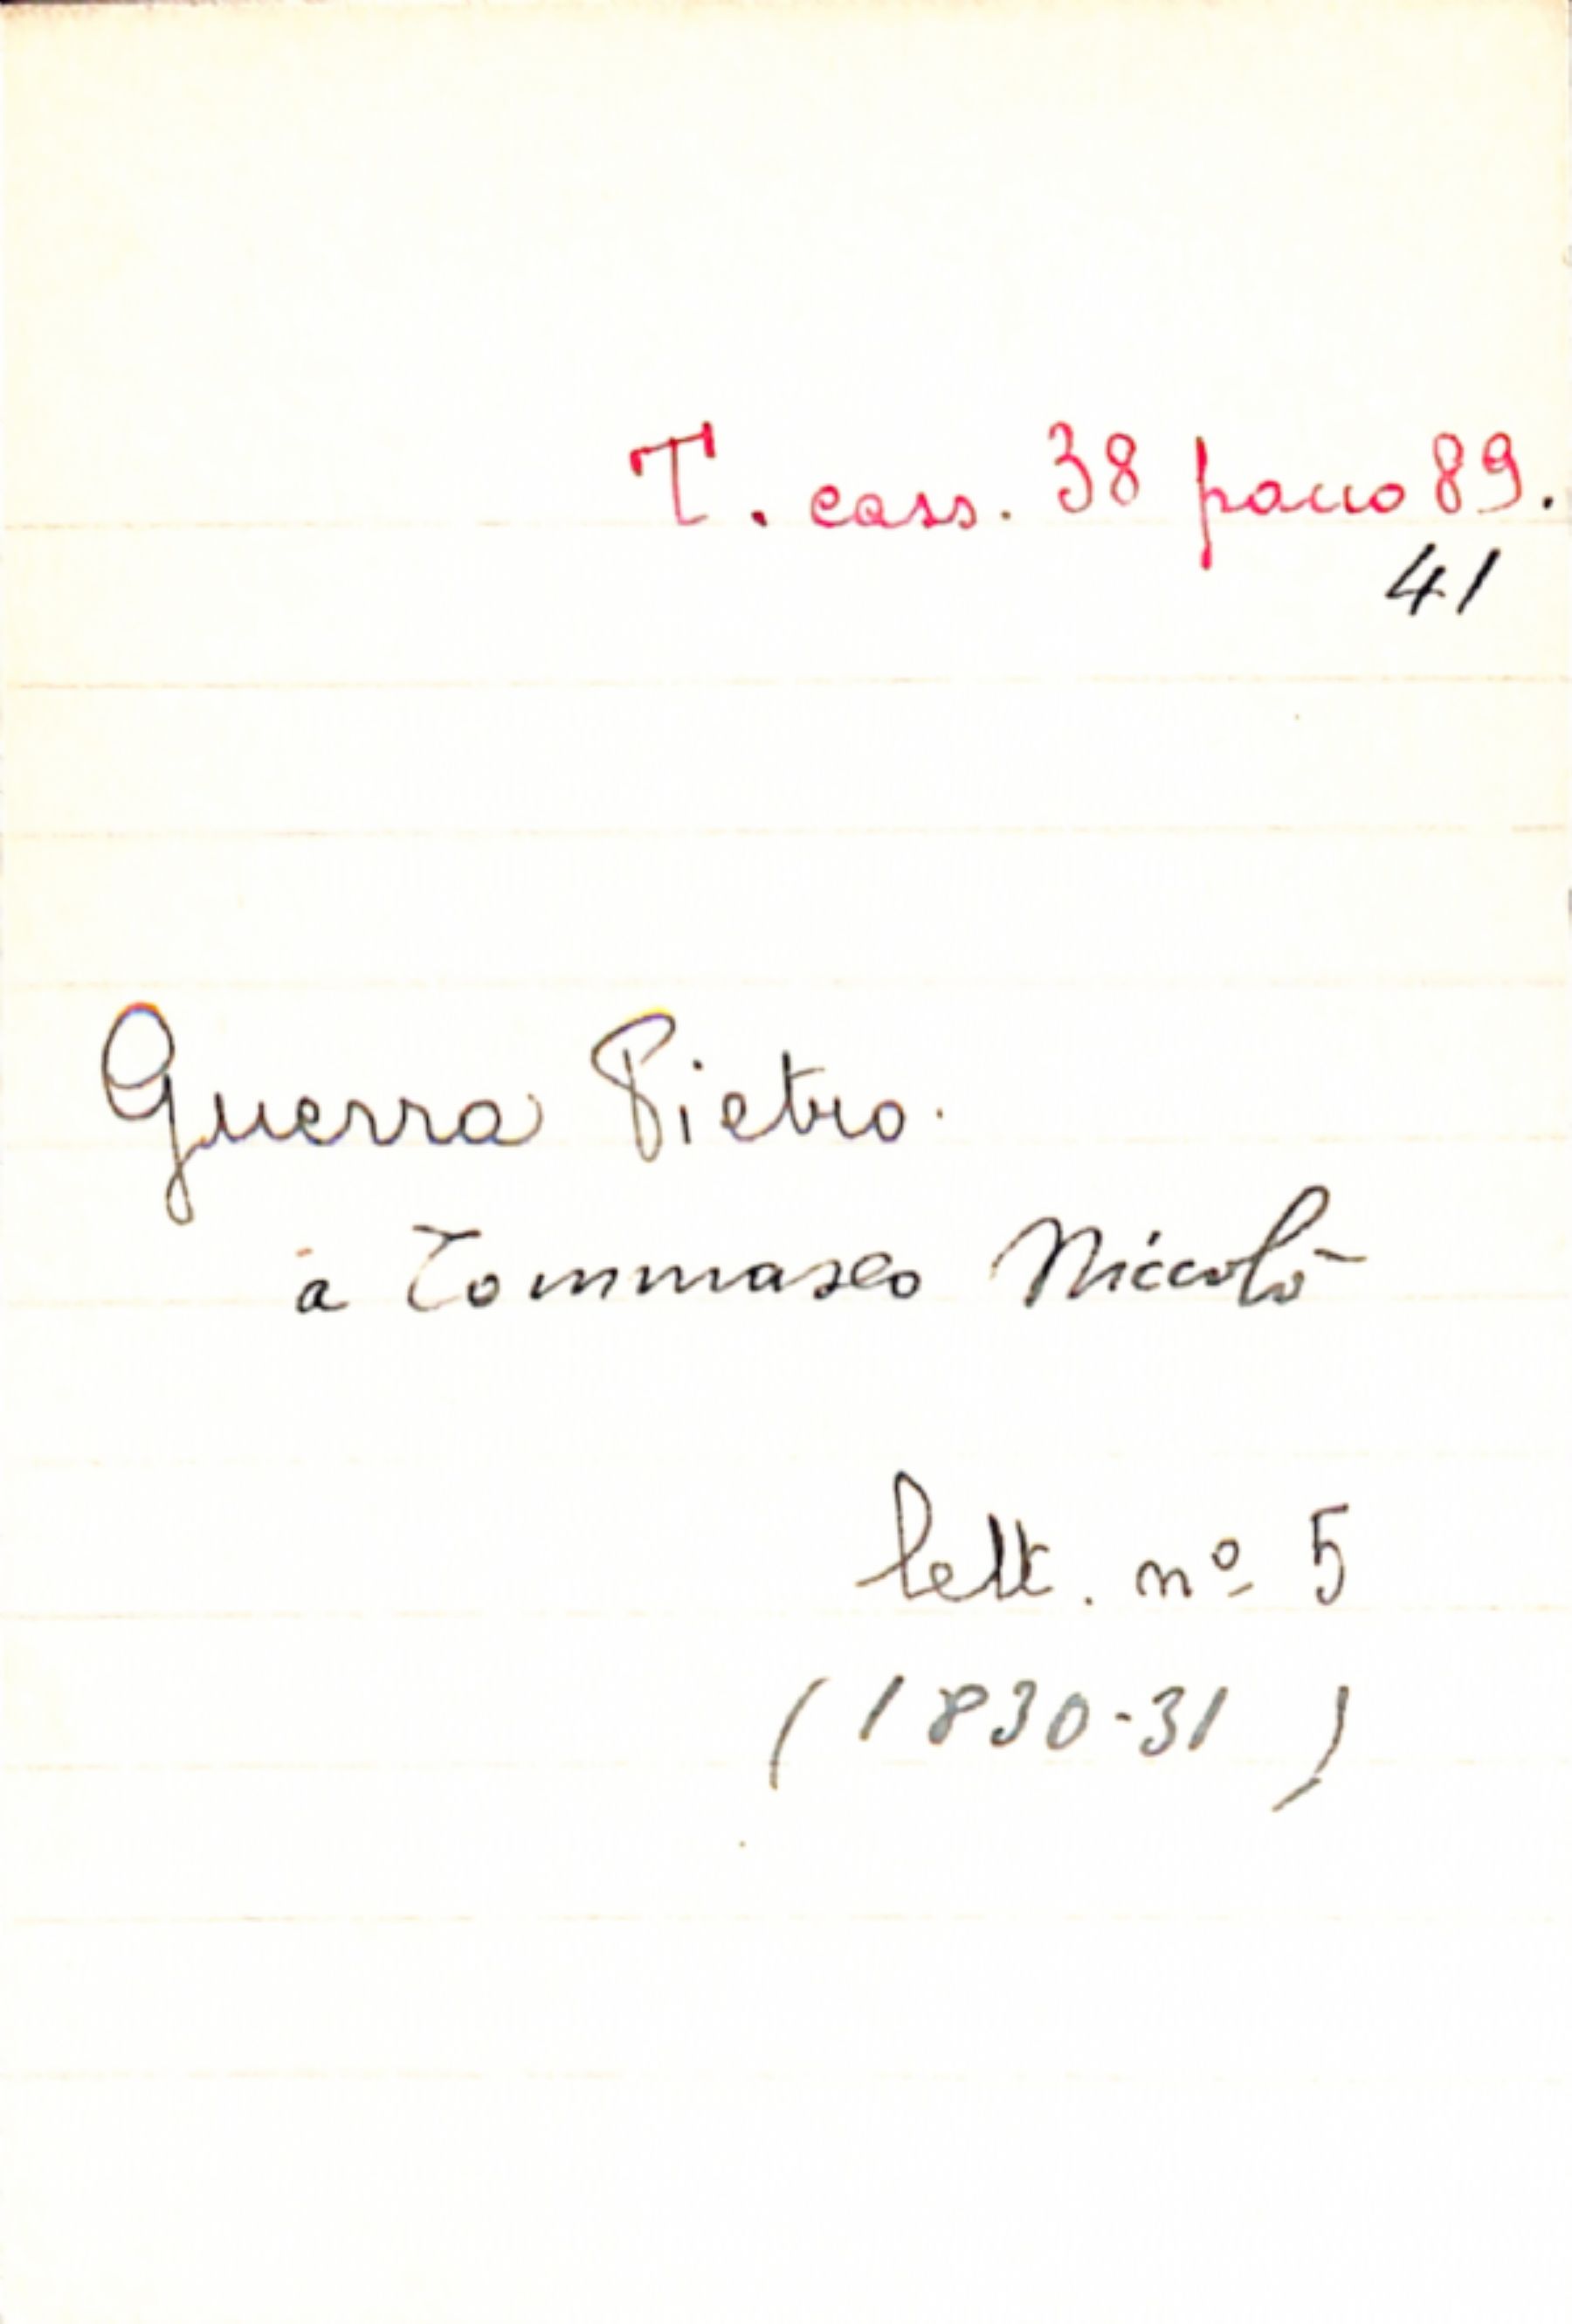 T. cass. 38 pacco 89.
41
Guerra Pietro.
a Tommaseo Niccolò
lett. nº 5
(1830-31)